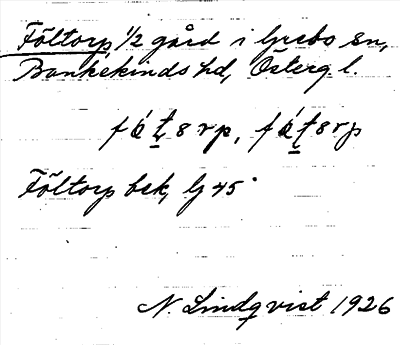 Föltorp, 1/2 gård i Grebo sn,
Bankekinds hd, Österg. l.
Föltorp bek, Gj 45
N. Lindqvist 1926